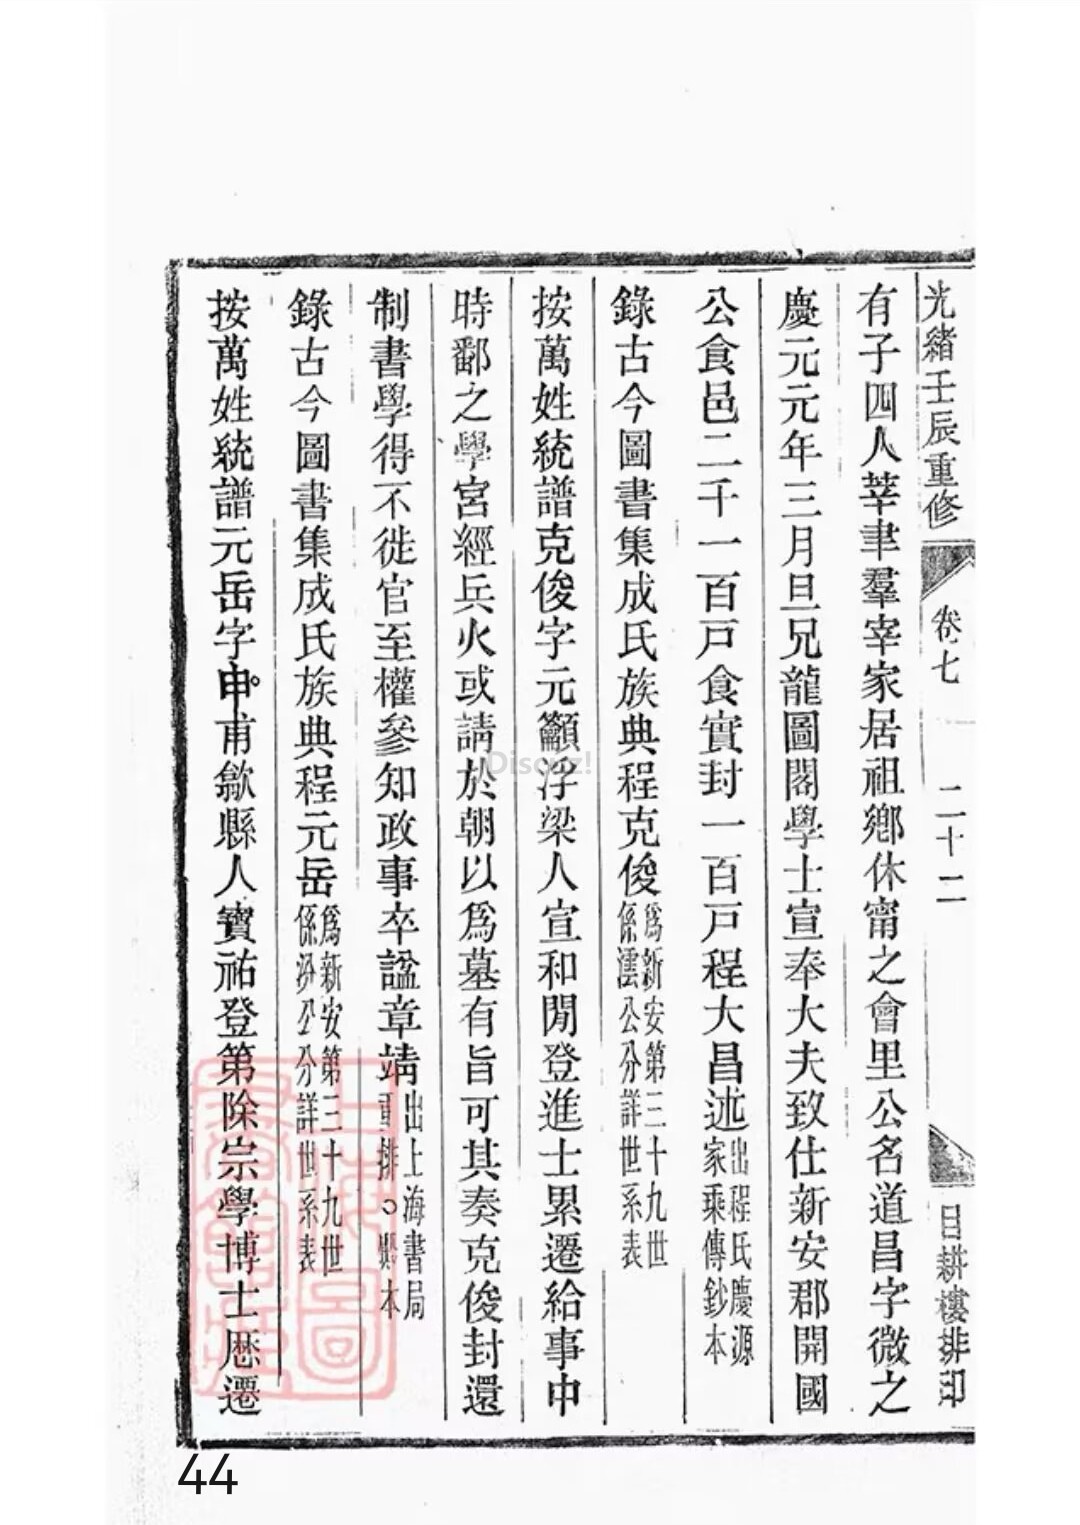 光緒壬辰重修 卷七 二十二 日耕樓排印
有子四人莘聿羣宰家居祖鄉休甯之會里公名道昌字微之
慶元元年三月旦兄龍圖閣學士宣奉大夫致仕新安郡開國
公食邑二千一百戸食實封一百戸程大昌述出程氏慶源家乘傳鈔本
錄古今圖書集成氏族典程克俊爲新安第三十九世係澐公分詳世系表
按萬姓統譜克俊字元籲浮梁人宣和閒登進士累遷給事中
時鄱之學宮經兵火或請於朝以爲墓有旨可其奏克俊封還
制書學得不徙官至權參知政事卒諡章靖出上海書局重排本
錄古今圖書集成氏族典程元岳爲新安第三十九世係汾公分詳世系表
按萬姓統譜元岳字申甫歙縣人寶祐登第除宗學博士歴遷
上海圖書館藏
Discuz!
44